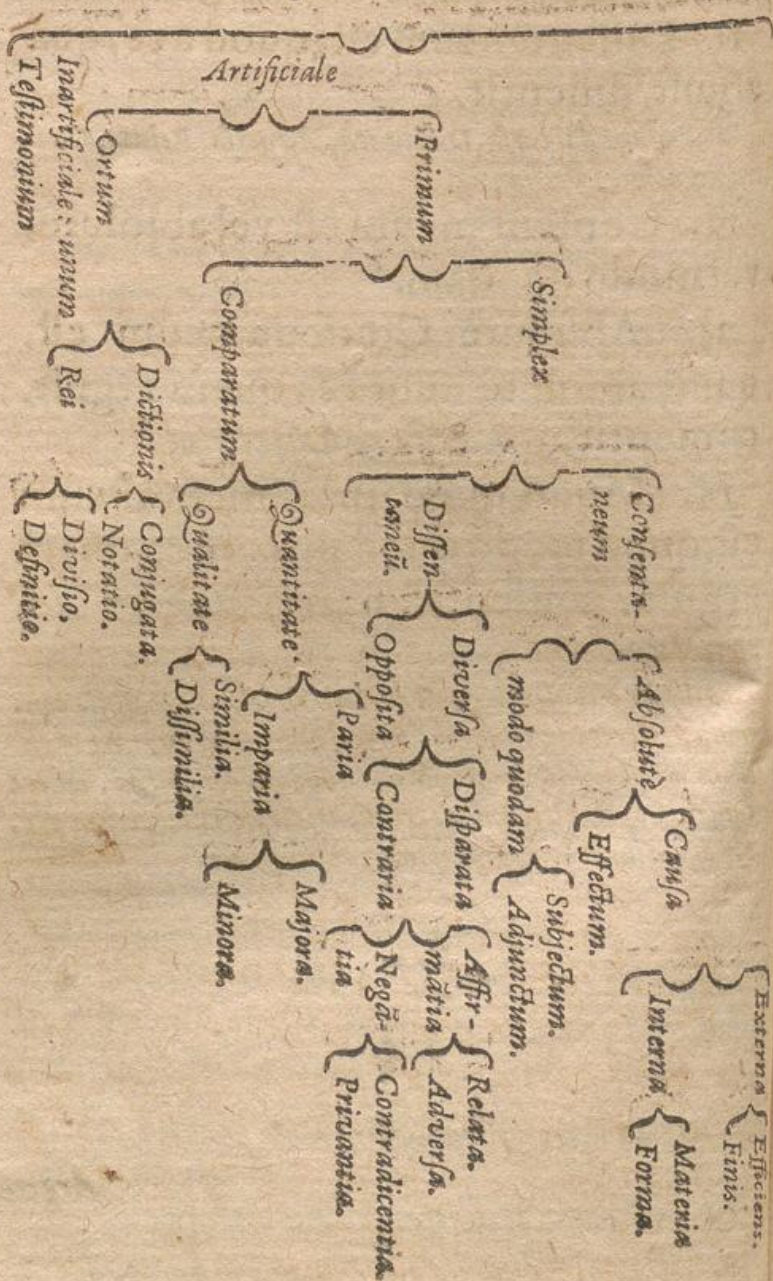 Artificiale
Primum
Simplex
Consenta-
neum
Absolutè
Causa
Externa
Efficiens.
Finis.
Interna
Materia
Forma.
Effectum.
modo quodam
Subjectum.
Adjunctum.
Dissen-
taneũ.
Diversa
Opposita
Disparata
Contraria
Affir-
mãtia
Relata.
Adversa.
Negã-
tia
Contradicentia.
Privantia.
Comparatum
Quantitate
Paria
Imparia
Majora.
Minora.
Qualitate
Similia.
Dissimilia.
Ortum
Dictionis
Conjugata.
Notatio.
Rei
Divisio.
Definitio.
Inartificiale: unum
Testimonium